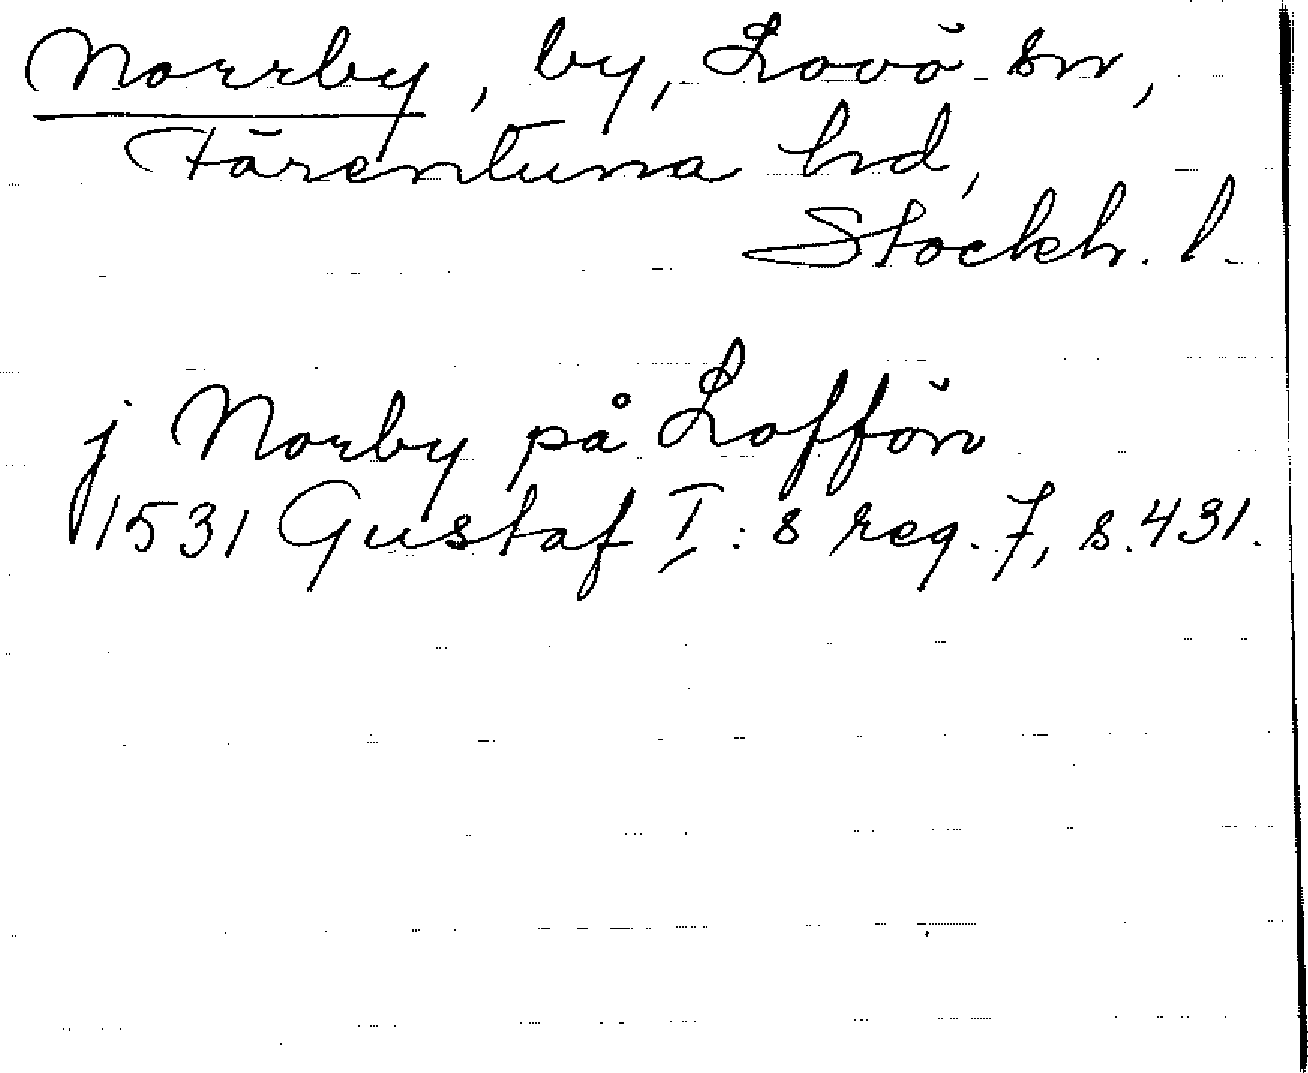 Norrby, by, Lovö sn,
Färentuna hd,
Stockh. l.
j Norby på Loffön
1531 Gustaf I:s reg. 7, s. 431.